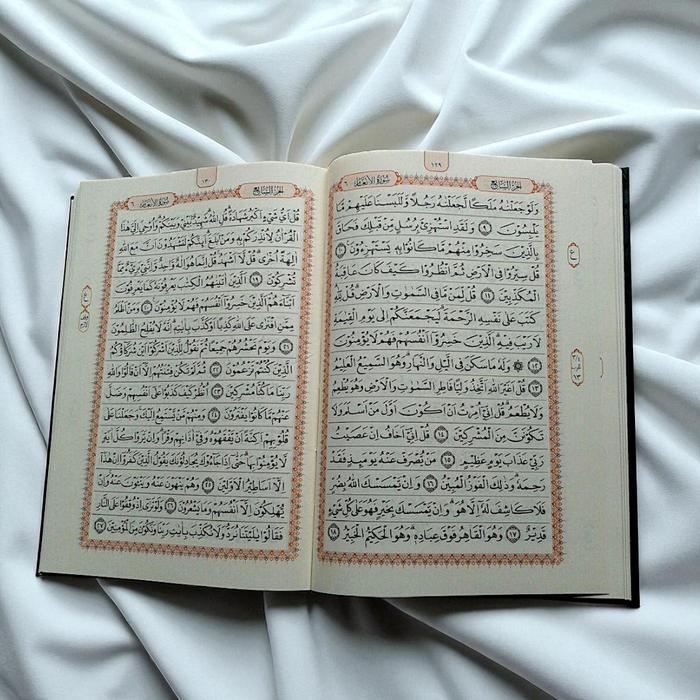 ١٢٩
الجزء السابع
سورة الأنعام ٦
وَلَوْ جَعَلْنَٰهُ مَلَكًا لَّجَعَلْنَٰهُ رَجُلًا وَلَلَبَسْنَا عَلَيْهِم مَّا
يَلْبِسُونَ ٩ وَلَقَدِ اسْتُهْزِئَ بِرُسُلٍ مِّن قَبْلِكَ فَحَاقَ
بِالَّذِينَ سَخِرُوا مِنْهُم مَّا كَانُوا بِهِ يَسْتَهْزِءُونَ ١٠
قُلْ سِيرُوا فِي الْأَرْضِ ثُمَّ انظُرُوا كَيْفَ كَانَ عَاقِبَةُ
الْمُكَذِّبِينَ ١١ قُل لِّمَن مَّا فِي السَّمَٰوَٰتِ وَالْأَرْضِ قُل لِّلَّهِ
كَتَبَ عَلَىٰ نَفْسِهِ الرَّحْمَةَ لَيَجْمَعَنَّكُمْ إِلَىٰ يَوْمِ الْقِيَٰمَةِ
لَا رَيْبَ فِيهِ الَّذِينَ خَسِرُوا أَنفُسَهُمْ فَهُمْ لَا يُؤْمِنُونَ
١٢ وَلَهُ مَا سَكَنَ فِي الَّيْلِ وَالنَّهَارِ وَهُوَ السَّمِيعُ الْعَلِيمُ
١٣ قُلْ أَغَيْرَ اللَّهِ أَتَّخِذُ وَلِيًّا فَاطِرِ السَّمَٰوَٰتِ وَالْأَرْضِ وَهُوَ يُطْعِمُ
وَلَا يُطْعَمُ قُلْ إِنِّي أُمِرْتُ أَنْ أَكُونَ أَوَّلَ مَنْ أَسْلَمَ وَلَا
تَكُونَنَّ مِنَ الْمُشْرِكِينَ ١٤ قُلْ إِنِّي أَخَافُ إِنْ عَصَيْتُ
رَبِّي عَذَابَ يَوْمٍ عَظِيمٍ ١٥ مَّن يُصْرَفْ عَنْهُ يَوْمَئِذٍ فَقَدْ
رَحِمَهُ وَذَٰلِكَ الْفَوْزُ الْمُبِينُ ١٦ وَإِن يَمْسَسْكَ اللَّهُ بِضُرٍّ
فَلَا كَاشِفَ لَهُ إِلَّا هُوَ وَإِن يَمْسَسْكَ بِخَيْرٍ فَهُوَ عَلَىٰ كُلِّ شَيْءٍ
قَدِيرٌ ١٧ وَهُوَ الْقَاهِرُ فَوْقَ عِبَادِهِ وَهُوَ الْحَكِيمُ الْخَبِيرُ ١٨
الجزء السابع
سورة الأنعام ٦
قُلْ أَيُّ شَيْءٍ أَكْبَرُ شَهَادَةً قُلِ اللَّهُ شَهِيدٌ بَيْنِي وَبَيْنَكُمْ وَأُوحِيَ إِلَيَّ هَٰذَا
الْقُرْآنُ لِأُنذِرَكُم بِهِ وَمَن بَلَغَ أَئِنَّكُمْ لَتَشْهَدُونَ أَنَّ مَعَ اللَّهِ
آلِهَةً أُخْرَىٰ قُل لَّا أَشْهَدُ قُلْ إِنَّمَا هُوَ إِلَٰهٌ وَاحِدٌ وَإِنَّنِي بَرِيءٌ مِّمَّا
تُشْرِكُونَ ١٩ الَّذِينَ آتَيْنَٰهُمُ الْكِتَٰبَ يَعْرِفُونَهُ كَمَا يَعْرِفُونَ
أَبْنَاءَهُمُ الَّذِينَ خَسِرُوا أَنفُسَهُمْ فَهُمْ لَا يُؤْمِنُونَ ٢٠ وَمَنْ أَظْلَمُ
مِمَّنِ افْتَرَىٰ عَلَى اللَّهِ كَذِبًا أَوْ كَذَّبَ بِآيَٰتِهِ إِنَّهُ لَا يُفْلِحُ الظَّٰلِمُونَ
٢١ وَيَوْمَ نَحْشُرُهُمْ جَمِيعًا ثُمَّ نَقُولُ لِلَّذِينَ أَشْرَكُوا أَيْنَ شُرَكَاؤُكُمُ
الَّذِينَ كُنتُمْ تَزْعُمُونَ ٢٢ ثُمَّ لَمْ تَكُن فِتْنَتُهُمْ إِلَّا أَن قَالُوا وَاللَّهِ
رَبِّنَا مَا كُنَّا مُشْرِكِينَ ٢٣ انظُرْ كَيْفَ كَذَبُوا عَلَىٰ أَنفُسِهِمْ وَضَلَّ
عَنْهُم مَّا كَانُوا يَفْتَرُونَ ٢٤ وَمِنْهُم مَّن يَسْتَمِعُ إِلَيْكَ وَجَعَلْنَا عَلَىٰ
قُلُوبِهِمْ أَكِنَّةً أَن يَفْقَهُوهُ وَفِي آذَانِهِمْ وَقْرًا وَإِن يَرَوْا كُلَّ آيَةٍ
لَّا يُؤْمِنُوا بِهَا حَتَّىٰ إِذَا جَاءُوكَ يُجَٰدِلُونَكَ يَقُولُ الَّذِينَ كَفَرُوا إِنْ هَٰذَا
إِلَّا أَسَاطِيرُ الْأَوَّلِينَ ٢٥ وَهُمْ يَنْهَوْنَ عَنْهُ وَيَنْأَوْنَ عَنْهُ وَإِن
يُهْلِكُونَ إِلَّا أَنفُسَهُمْ وَمَا يَشْعُرُونَ ٢٦ وَلَوْ تَرَىٰ إِذْ وُقِفُوا عَلَى النَّارِ
فَقَالُوا يَٰلَيْتَنَا نُرَدُّ وَلَا نُكَذِّبَ بِآيَٰتِ رَبِّنَا وَنَكُونَ مِنَ الْمُؤْمِنِينَ ٢٧